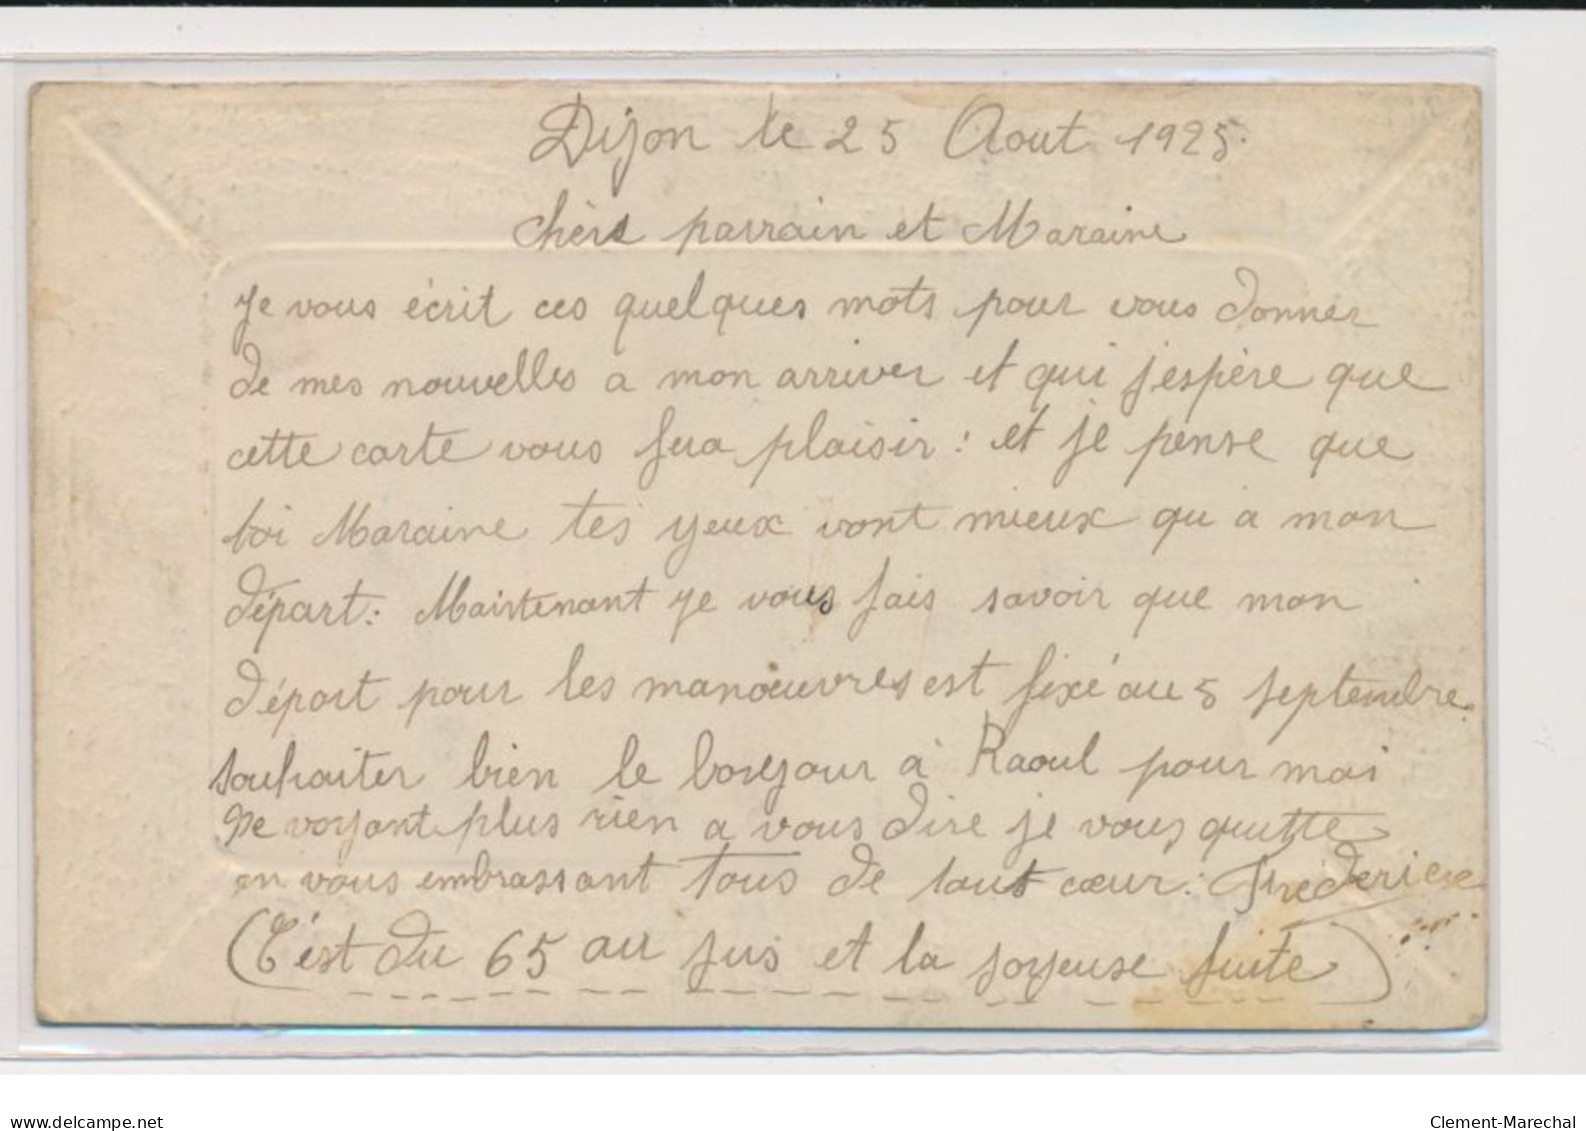 Dijon le 25 Aout 1925.
chèrs parrain et Maraine
Je vous écrit ces quelques mots pour vous donner
de mes nouvelles a mon arriver et qui j'espère que
cette carte vous fera plaisir : et je pense que
toi Maraine tes yeux vont mieux qu'a mon
départ : Maintenant je vous fais savoir que mon
départ pour les manœuvres est fixé au 5 septembre.
souhaiter bien le bonjour à Raoul pour moi
Ne voyant plus rien a vous dire je vous quitte
en vous embrassant tous de tout cœur :
(C'est du 65 au jus et la joyeuse fuite)
www.delcampe.net
Clement-Marechal